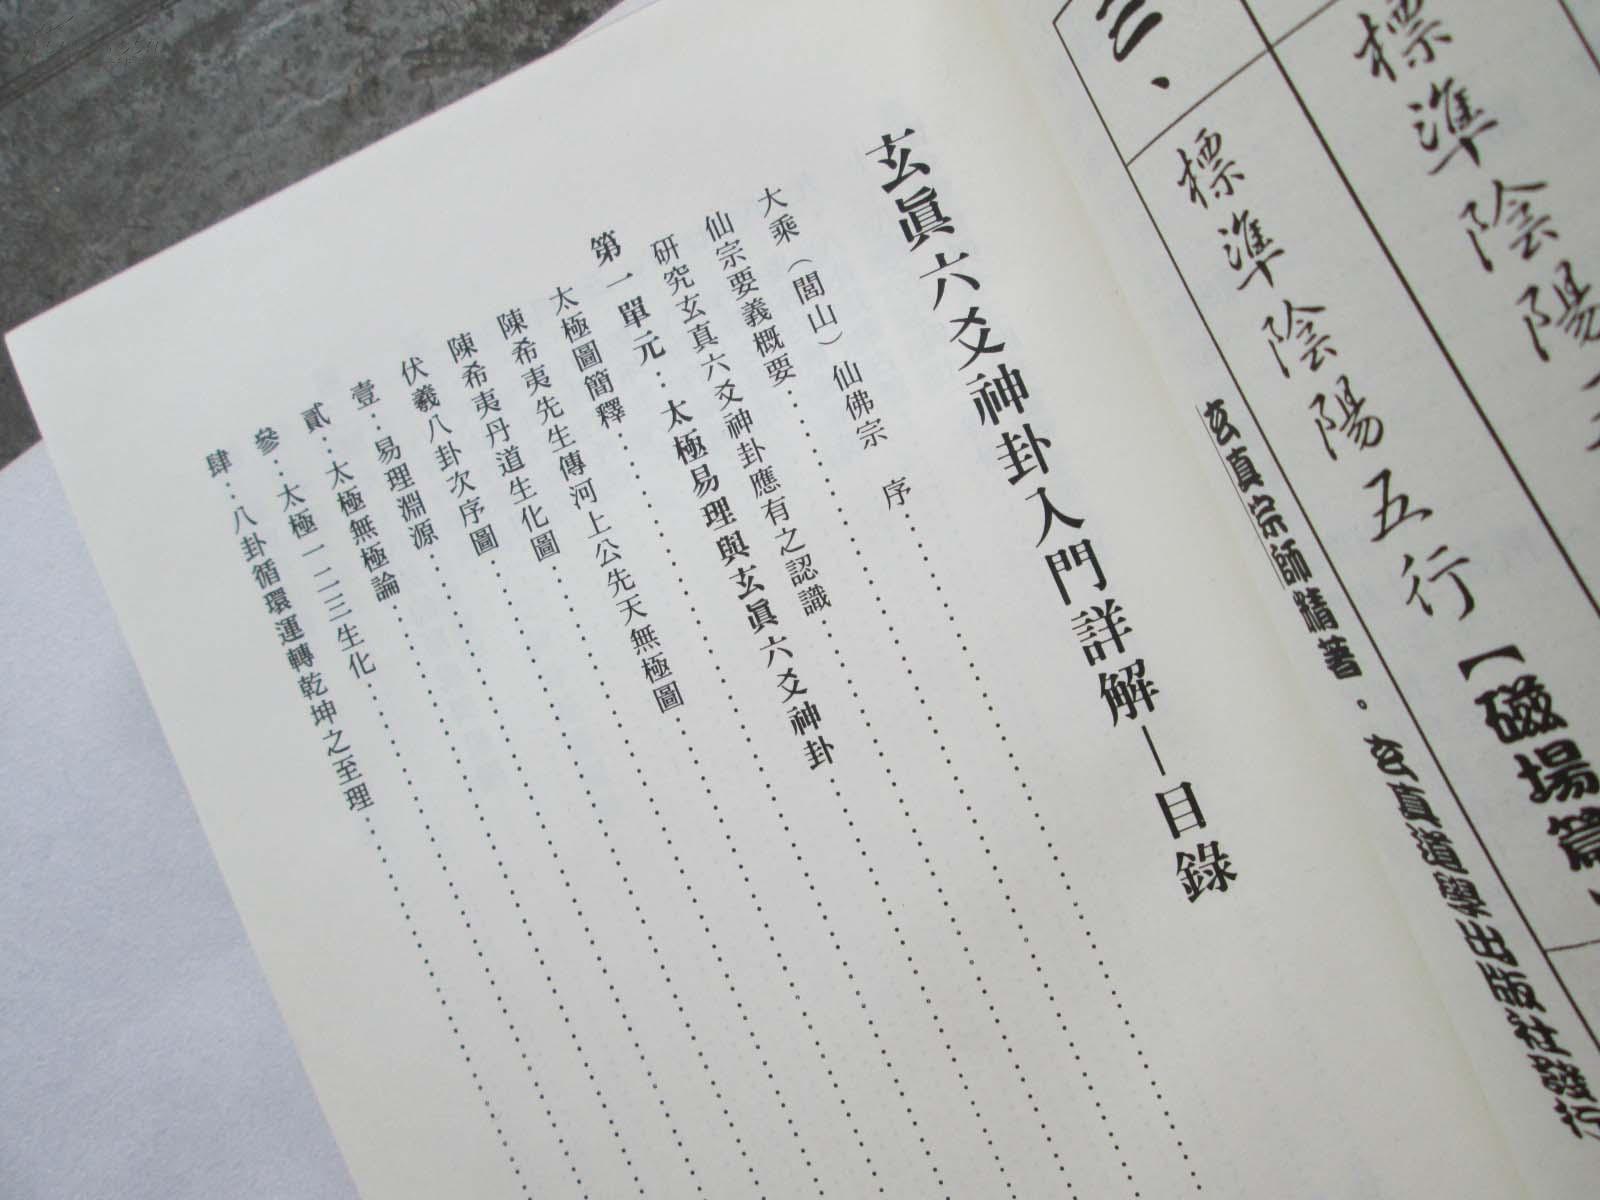 三、
標準陰陽
標準陰陽五行【磁場篇
玄真宗師精著。玄真道學出版社發行
玄眞六爻神卦入門詳解—目錄
大乘（閭山）仙佛宗　序
仙宗要義概要
研究玄真六爻神卦應有之認識
第一單元：太極易理與玄眞六爻神卦
太極圖簡釋
陳希夷先生傳河上公先天無極圖
陳希夷丹道生化圖
伏羲八卦次序圖
壹：易理淵源
貳：太極無極論
參：太極一二三生化
肆：八卦循環運轉乾坤之至理